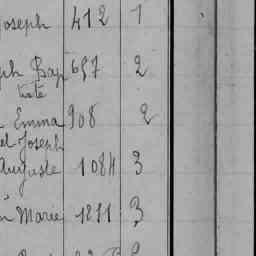 Joseph 412 1
ph Bap 657 2
tiste
Emma 908 2
el Joseph
Auguste 1084 3
Marie 1211 3